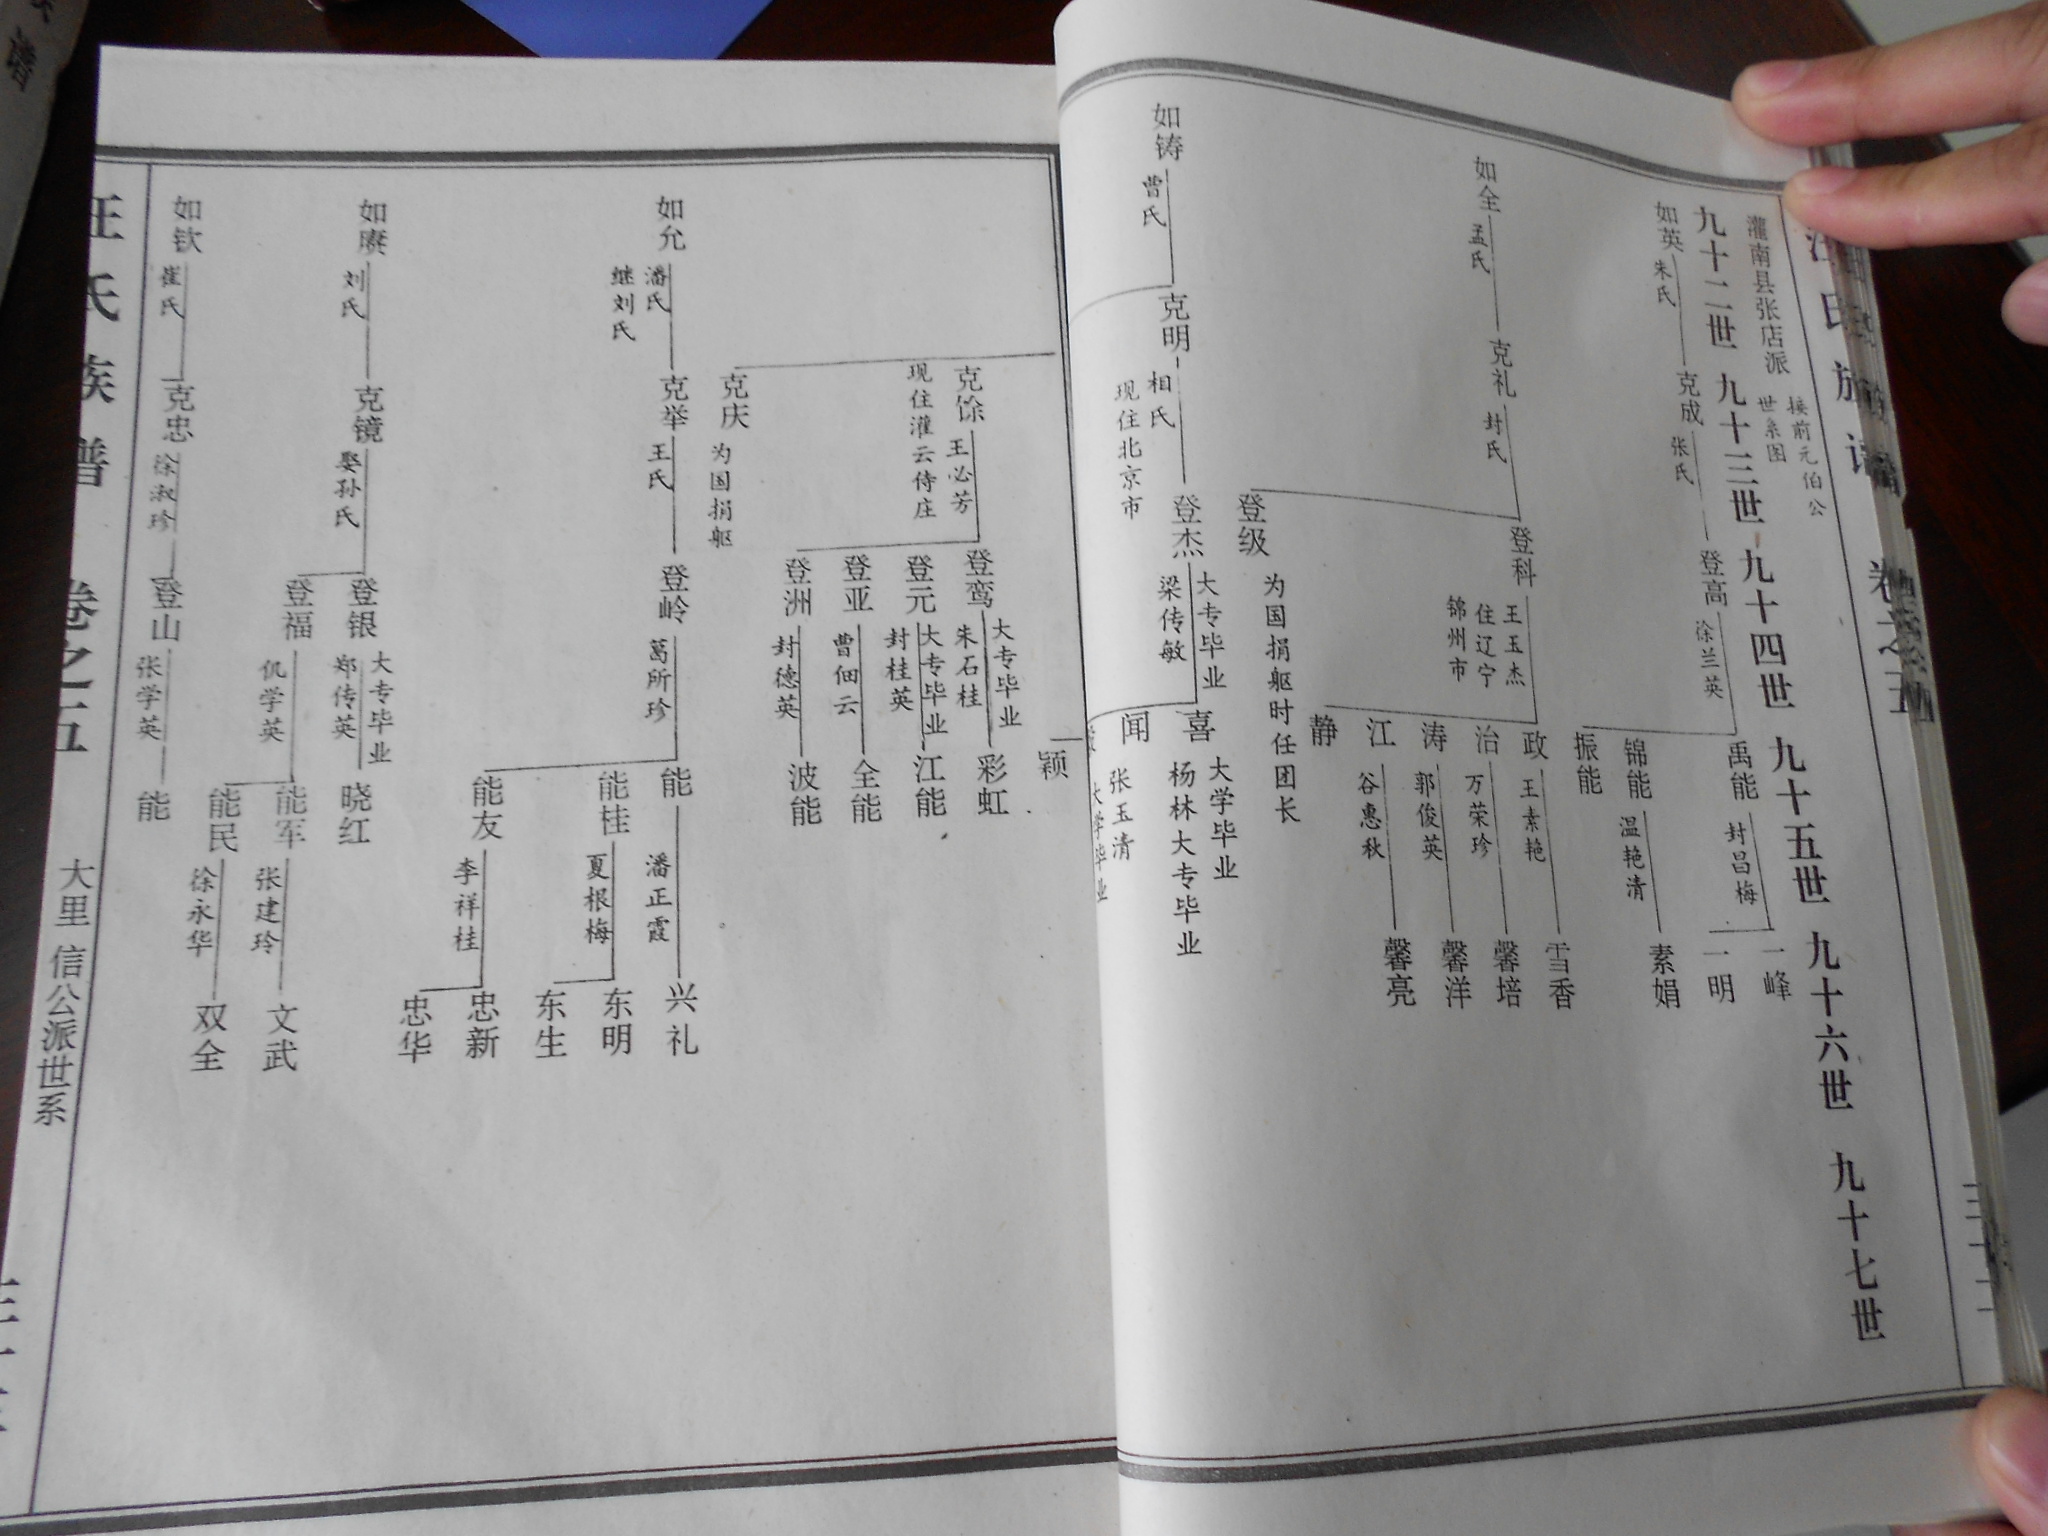 灌南县张店派
接前元伯公
世系图
九十二世 九十三世 九十四世 九十五世 九十六世 九十七世
如英 朱氏 克成 张氏 登高 徐兰英
禹能 封昌梅 一峰
一明
锦能 温艳清 素娟
振能
如全 孟氏 克礼 封氏 登科 王玉杰
住辽宁
锦州市
政 王素艳 雪香
治 万荣珍 馨培
涛 郭俊英 馨洋
江 谷惠秋 馨亮
静
登级 为国捐躯时任团长
如铸 曹氏 克明 相氏
现住北京市
登杰 大专毕业
梁传敏
喜 大学毕业
杨林大专毕业
闻 张玉清
大学毕业
颖
克馀 王必芳
现住灌云侍庄
登鸾 大专毕业
朱石桂 彩虹
登元 大专毕业
封桂英 江能
登亚 曹佃云 全能
登洲 封德英 波能
克庆 为国捐躯
如允 潘氏
继刘氏
克举 王氏 登岭 葛所珍
能 潘正霞 兴礼
能桂 夏根梅 东明
东生
能友 李祥桂 忠新
忠华
如赓 刘氏 克镜 娶孙氏
登银 大专毕业
郑传英 晓红
登福 仇学英
能军 张建玲 文武
能民 徐永华 双全
如钦 崔氏 克忠 徐淑珍 登山 张学英 能
汪氏族谱 卷之五 大里 信公派世系